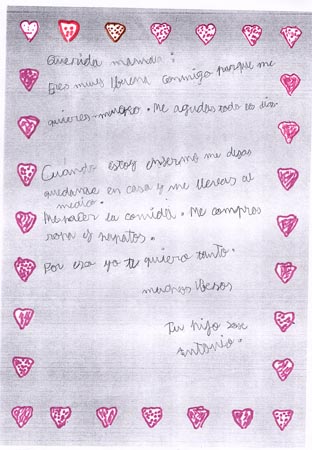 Querida mamá:
Eres muy buena conmigo porque me
quieres mucho. Me ayudas todo los días.
Cuando estoy enfermo me dejas
quedarme en casa y me llevas al
médico.
Me haces la comida. Me compras
ropa y zapatos.
Por eso yo te quiero tanto.
muchos besos
Tu hijo Jose
Antonio.